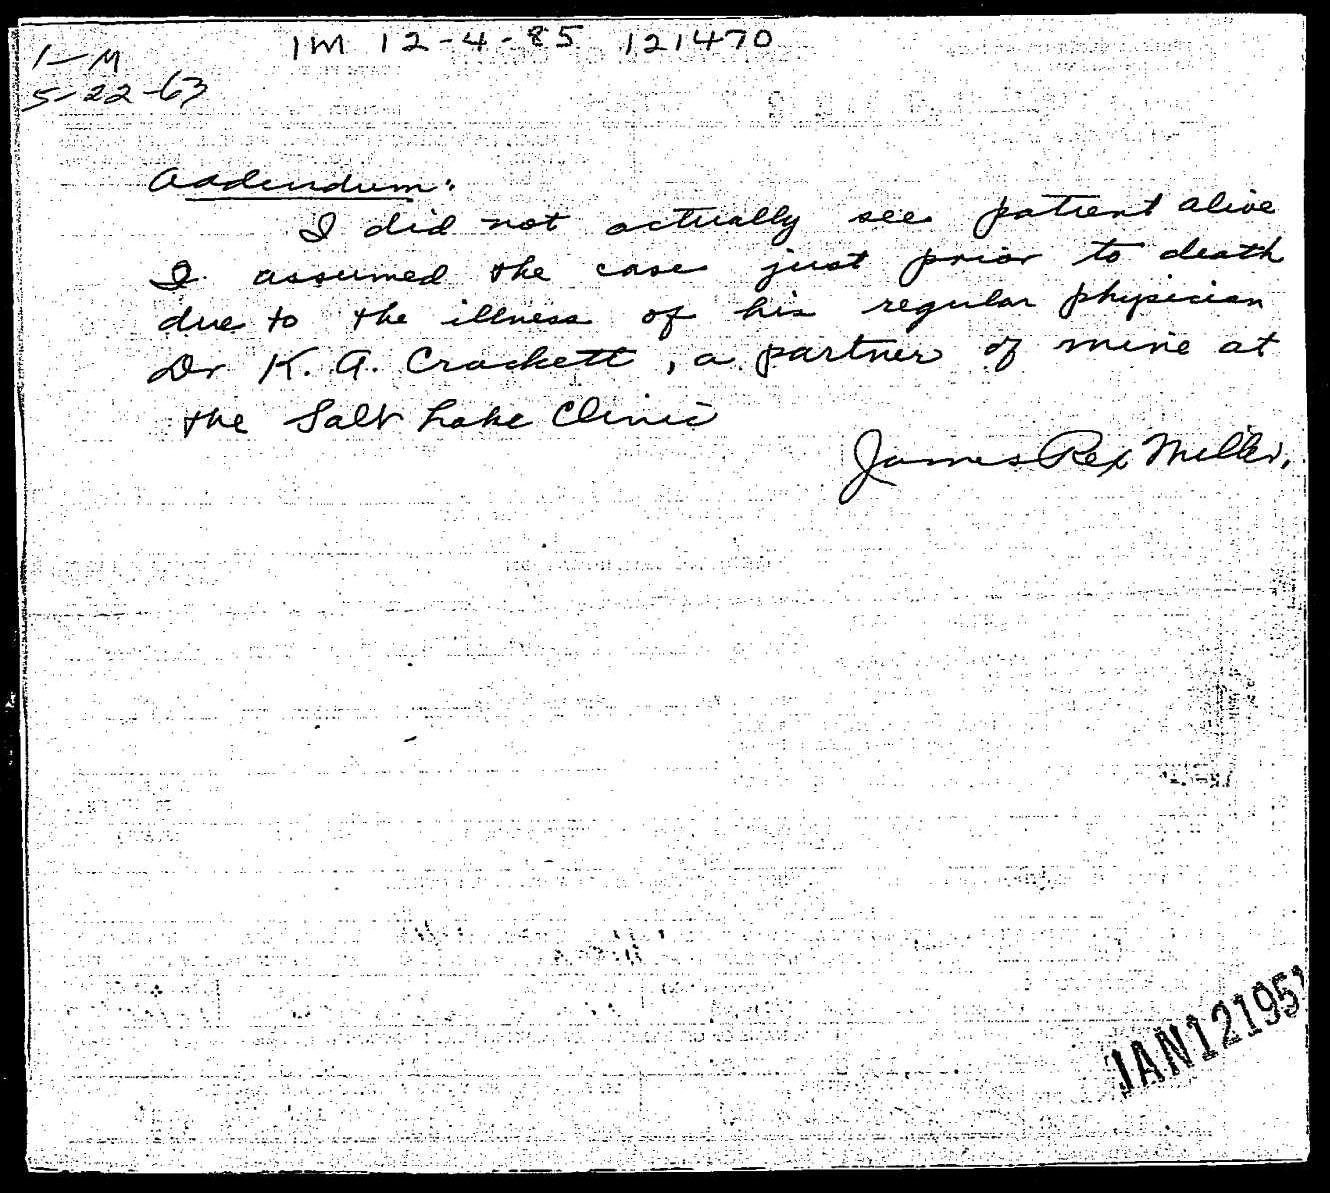 1M 12-4-85 121470
1-M
5-22-63
Addendum:
I did not actually see patient alive
I assumed the case just prior to death
due to the illness of his regular physician
Dr K. A. Crockett, a partner of mine at
the Salt Lake Clinic
James Rex Miller.
JAN 12 195